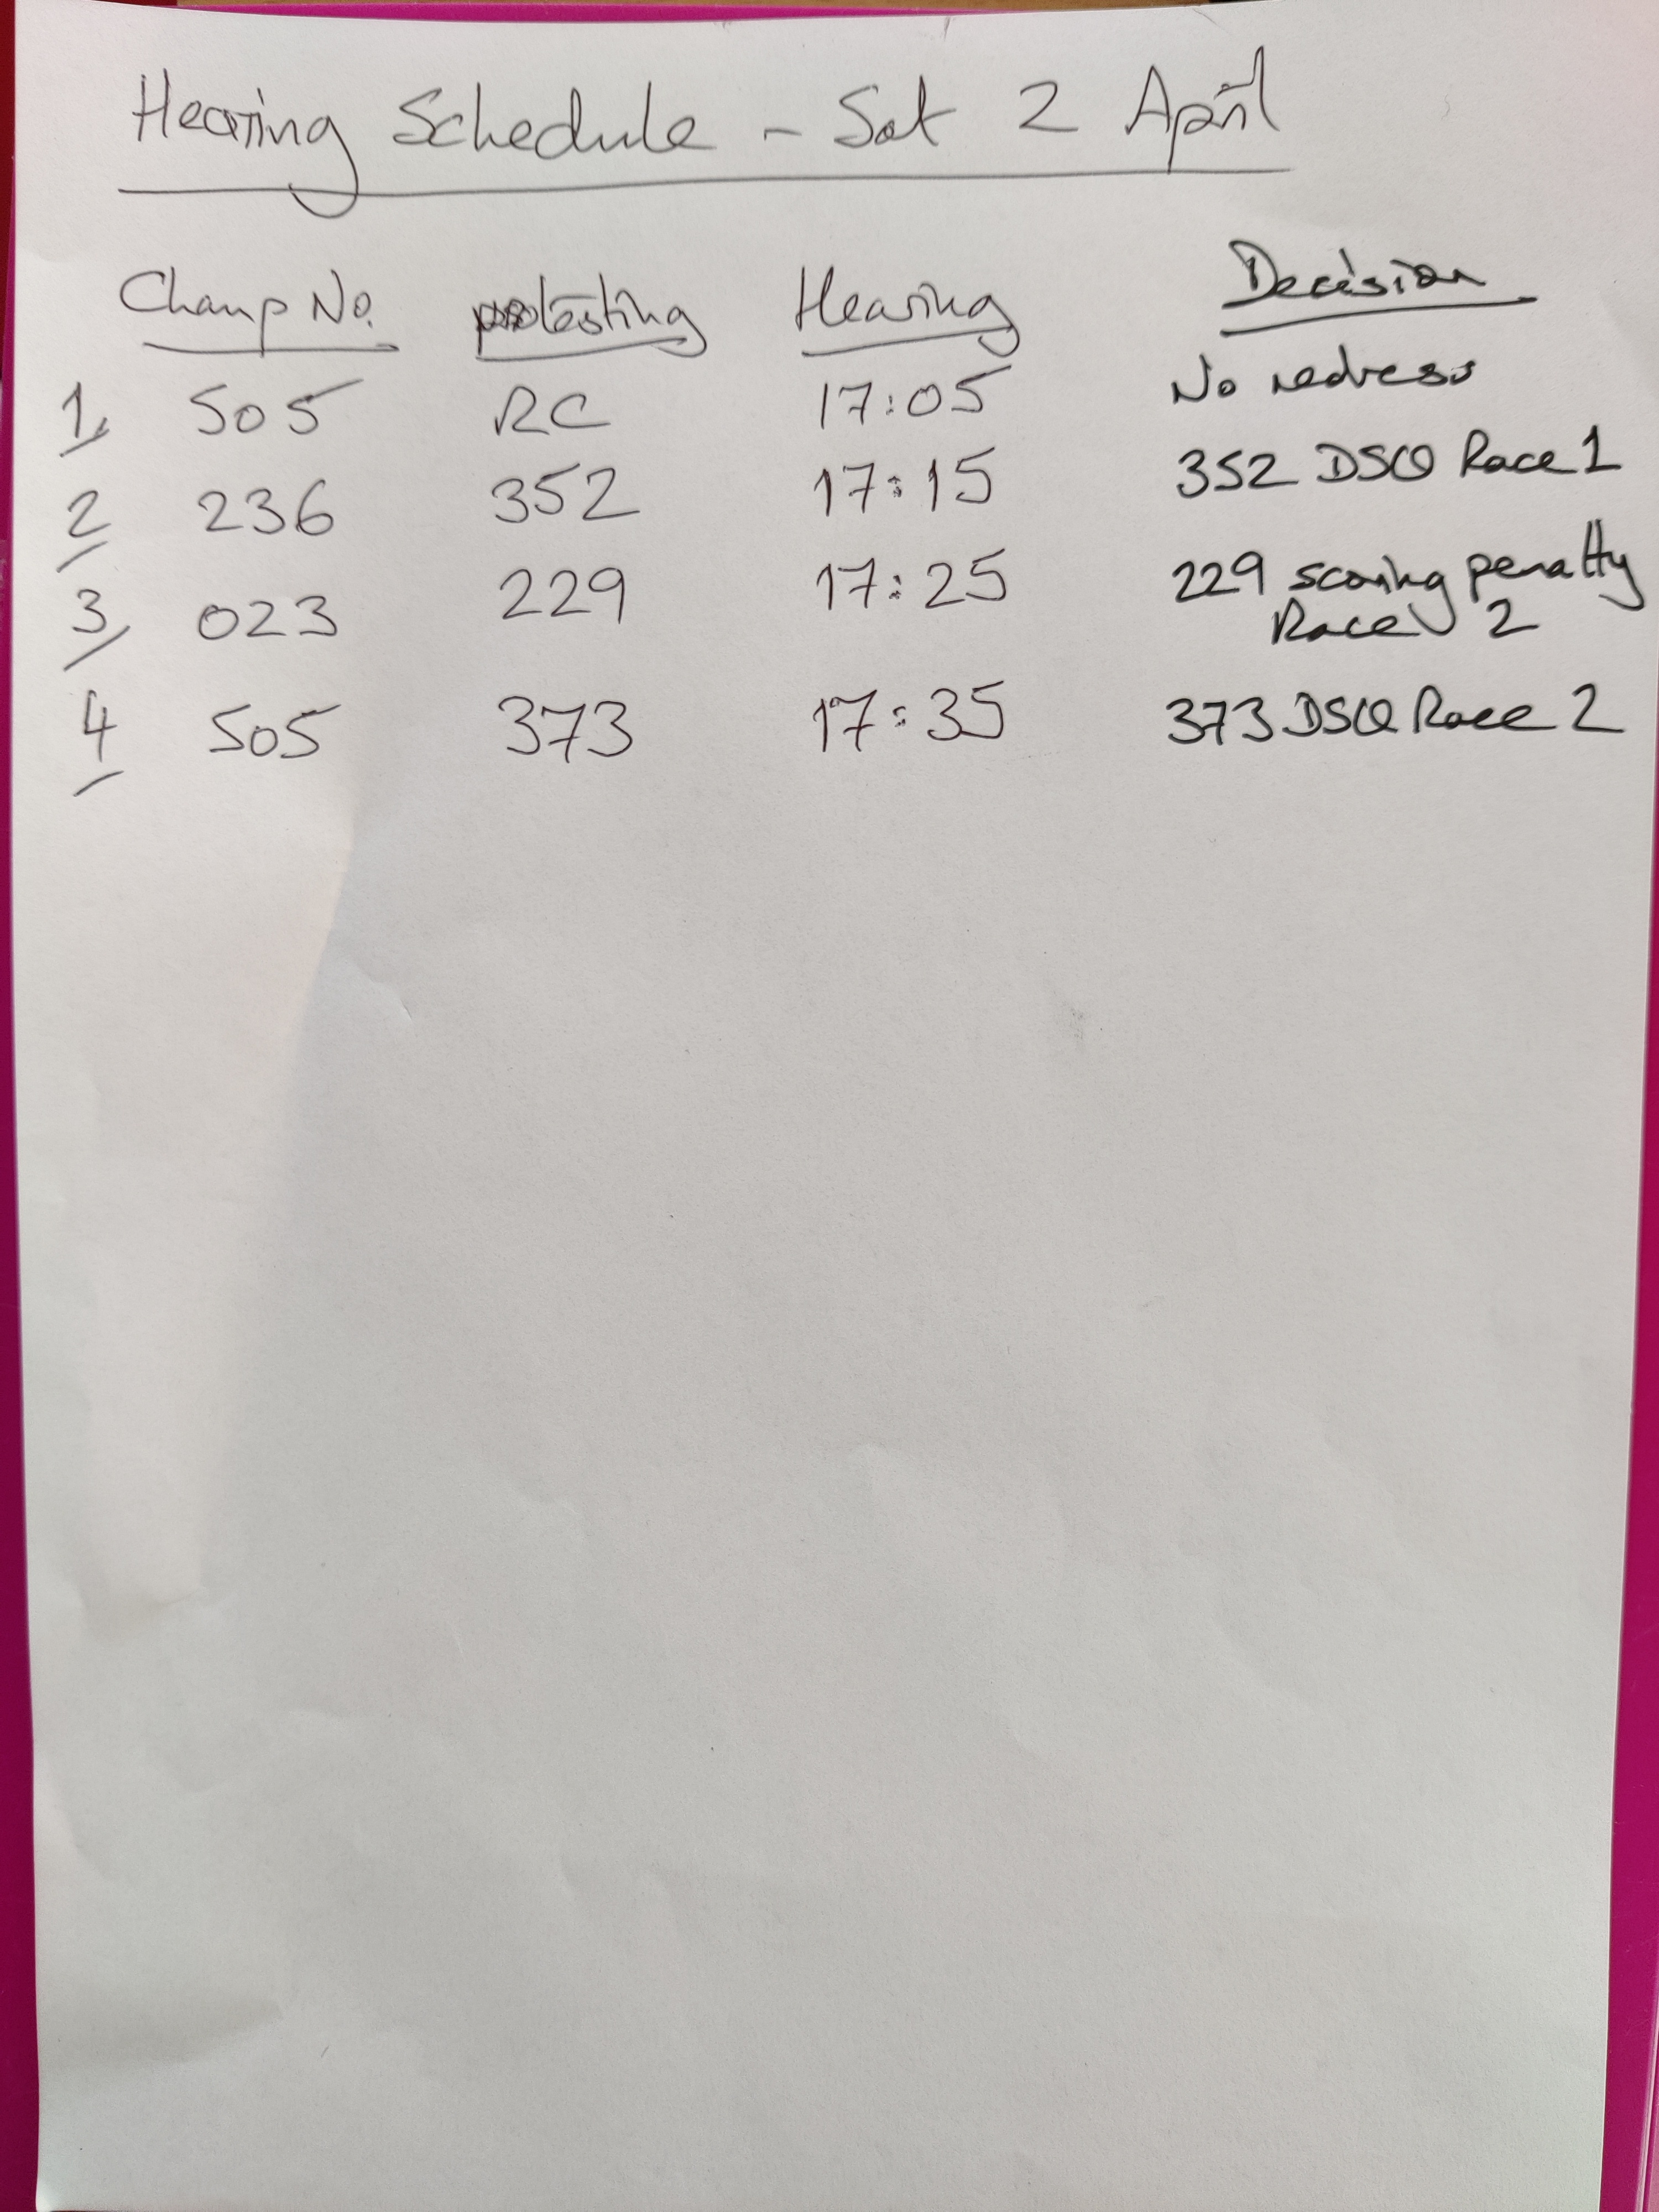 Hearing Schedule - Sat 2 April
Champ No. protesting Hearing Decision
1, 505 RC 17:05 No redress
2 236 352 17:15 352 DSQ Race 1
3, 023 229 17:25 229 scoring penalty
Race 2
4 505 373 17:35 373 DSQ Race 2